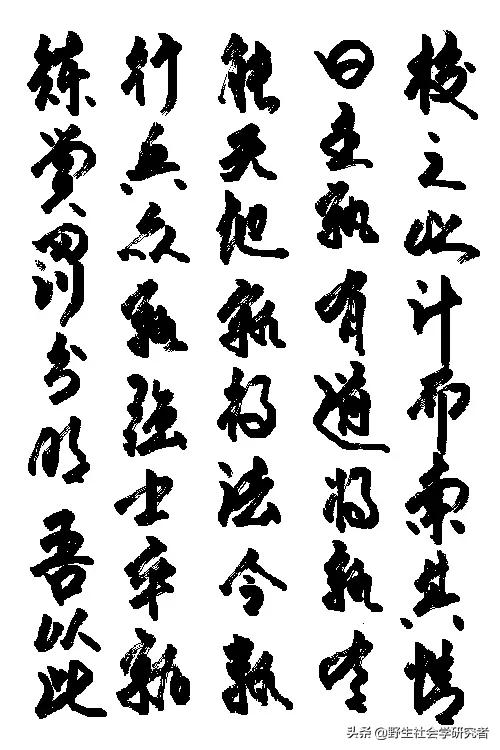 校之以计而索其情
曰主孰有道将孰有
能天地孰得法令孰
行兵众孰强士卒孰
鍊赏罚分明吾以此
头条 @野生社会学研究者